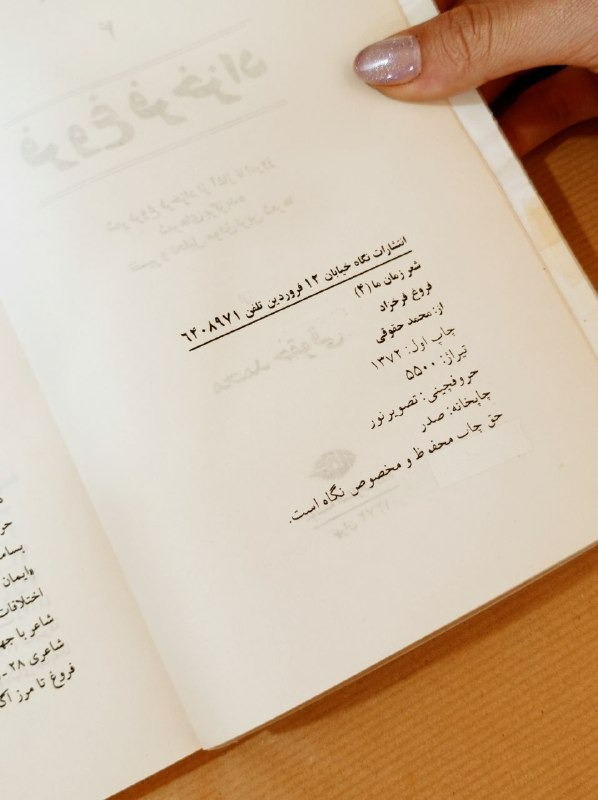 انتشارات نگاه خیابان ۱۲ فروردین تلفن ۶۴۰۸۹۷۱
شعر زمان ما (۴)
فروغ فرخزاد
از: محمد حقوقی
چاپ اول: ۱۳۷۲
تیراژ: ۵۵۰۰
حروفچینی: تصویر نور
چاپخانه: صدر
حق چاپ محفوظ و مخصوص نگاه است.
بسامد
«ایمان
اختلافات
شاعر با جه
شاعری ۲۸ -
فروغ تا مرز آگ